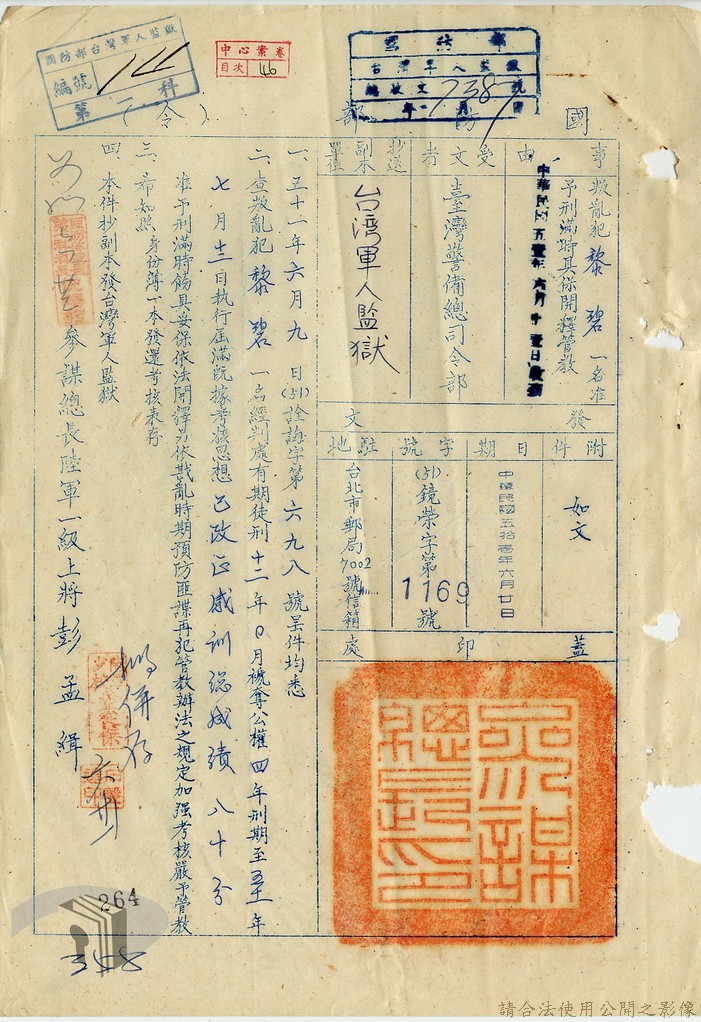 國防部台灣軍人監獄
編號 144
第一科
中心案卷
目次 46
國防部
台灣軍人監獄
總收文 7387 號
年 月 日
國防部(令)
事由
叛亂犯黎碧一名准
予刑滿時具保開釋管教
中華民國五壹年六月廿壹日收辦
受文者
臺灣警備總司令部
抄送副本單位
台湾軍人監獄
發文
附件
如文
日期
中華民國五拾壹年六月廿日
字號
(51)鏡榮字第1169號
駐地
台北市郵局7002號信箱
蓋印處
參謀總長之印
一、五十一年六月九日(51)詮誨字第六九八號呈件均悉
二、查叛亂犯黎碧一名經判處有期徒刑十二年0月褫奪公權四年刑期至五十一年
七月十三日執行屆滿既據考核思想已改正感訓總成績八十分
准予刑滿時飭具妥保依法開釋另依戡亂時期預防匪諜再犯管教辦法之規定加强考核嚴予管教
三、希如照身份簿一本發還考核表存
四、本件抄副本發台灣軍人監獄
參謀總長陸軍一級上將彭孟緝
併存
264
358
請合法使用公開之影像